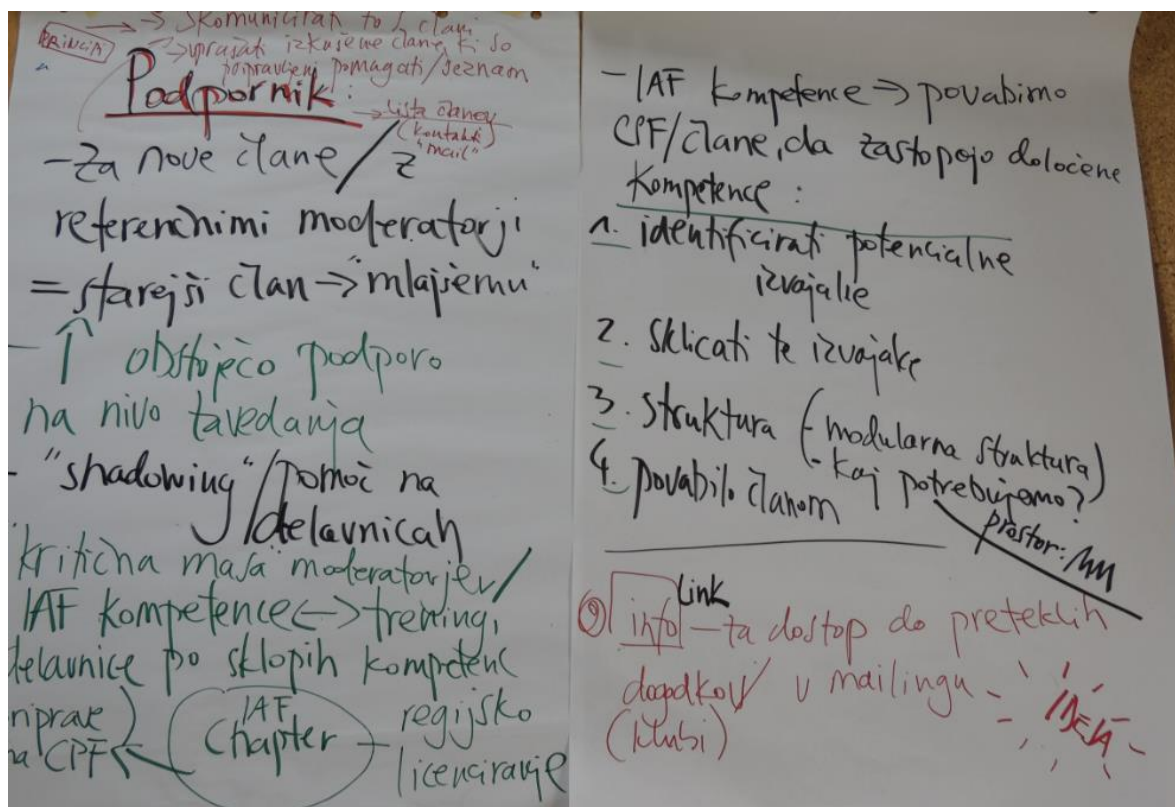 → skomunicirati to s člani
PRINCIP → vprašati izkušene člane, ki so
pripravljeni pomagati/seznam
Podpornik:
→ lista članov
(kontakti
"mail"
- za nove člane / z
referenčnimi moderatorji
= starejši član → "mlajšemu"
- ↑ obstoječo podporo
na nivo zavedanja
- "shadowing"/pomoč na
delavnicah
kritična masa moderatorjev/
IAF kompetence <-> treningi,
delavnice po sklopih kompetenc
priprave
na CPF
IAF
Chapter
- regijsko
licenciranje
- IAF kompetence → povabimo
CPF/člane, da zastopajo določene
kompetence:
1. identificirati potencialne
izvajalce
2. sklicati te izvajalce
3. struktura (- modularna struktura)
- kaj potrebujemo?
4. povabilo članom
prostor: MM
Link
info - za dostop do preteklih
dogodkov v mailingu -
(klubi)
IDEJA